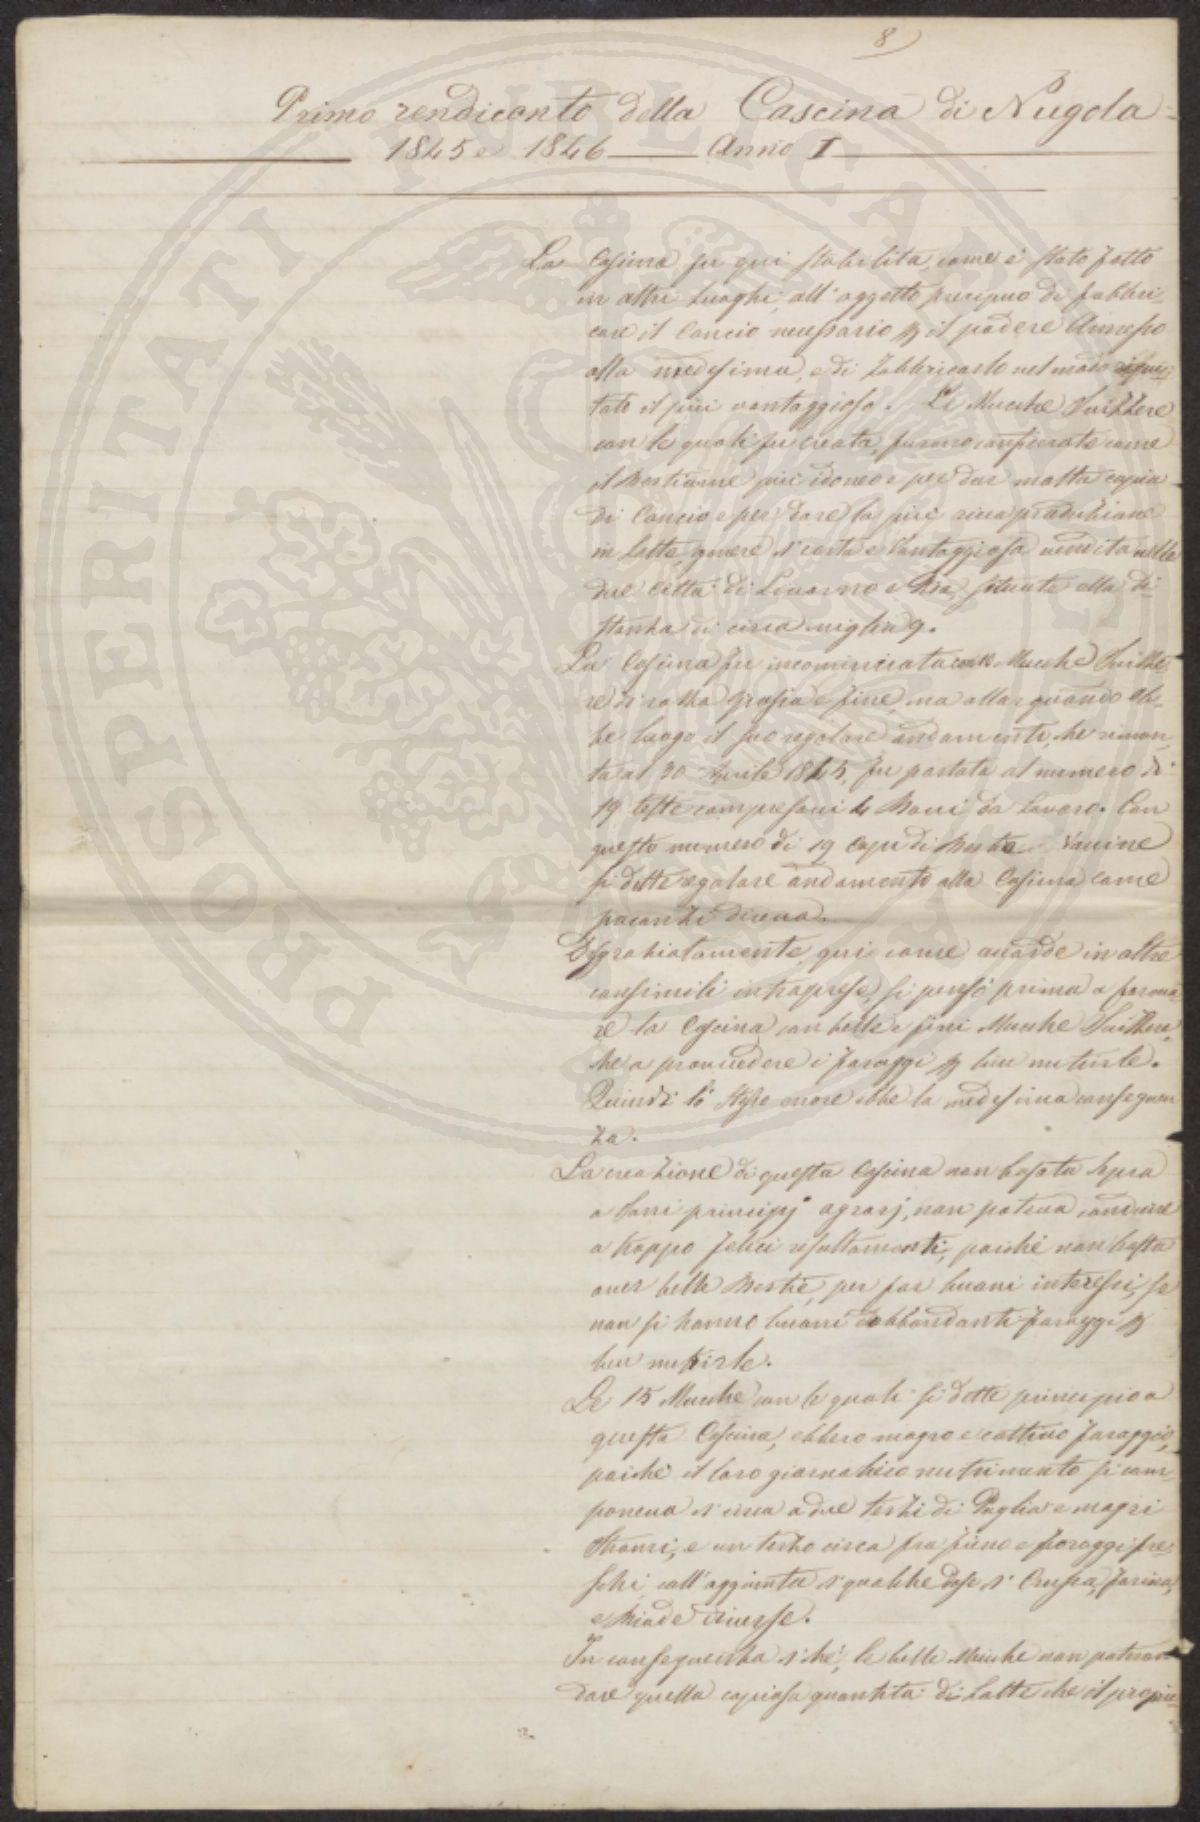 8
Primo rendiconto della Cascina di Nugola
1845 e 1846 Anno I
La Cascina fu qui stabilita, come è stato fatto
in altri luoghi, all'oggetto precipuo di fabbri-
care il Concio necessario p il podere Annesso
alla medesima, e di fabbricarlo nel modo reputato
tato il più vantaggioso. Le Mucche Svizzere
con le quali fu creata, furono considerate come
il Bestiame più idoneo e per dar molta copia
di Concio e per dare la più ricca produzione
in Latte, genere di certa e vantaggiosa vendita nelle
due città di Livorno e Pisa situate alla di-
stanza di circa miglia 9.
La Cascina fu incominciata con Mucche Svizze-
re di razza grossa e fine, ma allor quando eb-
be luogo il suo regolare andamento, che rimon-
ta al 30 Aprile 1845, fu portata al numero di
19 teste compresovi 4 Bovi da Lavoro. Con
questo numero di 19 capi di Bestie Vaccine
si dette regolare andamento alla Cascina come
poc'anzi diceva.
Disgraziatamente, qui come accadde in altre
consimili intraprese, si pensò prima a forma-
re la Cascina con belle e fini Mucche Svizzere,
che a provvedere i foraggi p ben nutrirle.
Quindi lo stesso errore ebbe la medesima conseguen
za.
La creazione di questa Cascina non basata sopra
a sani principj agrarj, non poteva condurre
a troppo felici resultamenti, poiché non basta
aver belle Bestie, per far buoni interessi, se
non si hanno buoni e abbondanti foraggi p
ben nutrirle.
Le 15 Mucche con le quali si dette principio a
questa Cascina, ebbero magro e cattivo foraggio,
poiché il loro giornaliero nutrimento si com-
poneva di circa a due terzi di Paglia e magri
Strami, e un terzo circa fra fieno e foraggi fre-
schi coll'aggiunta di qualche dose di Crusca, farina,
e Biade diverse.
In conseguenza di che, le belle Mucche non potevan
dare quella copiosa quantità di Latte che il proprie-
PROSPERITATI PUBLICAE